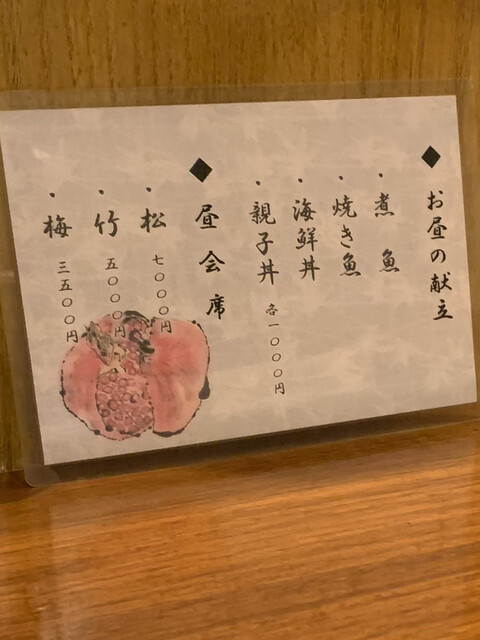 ◆お昼の献立
・煮魚
・焼き魚
・海鮮丼
・親子丼 各一〇〇〇円
◆昼会席
・松 七〇〇〇円
・竹 五〇〇〇円
・梅 三五〇〇円